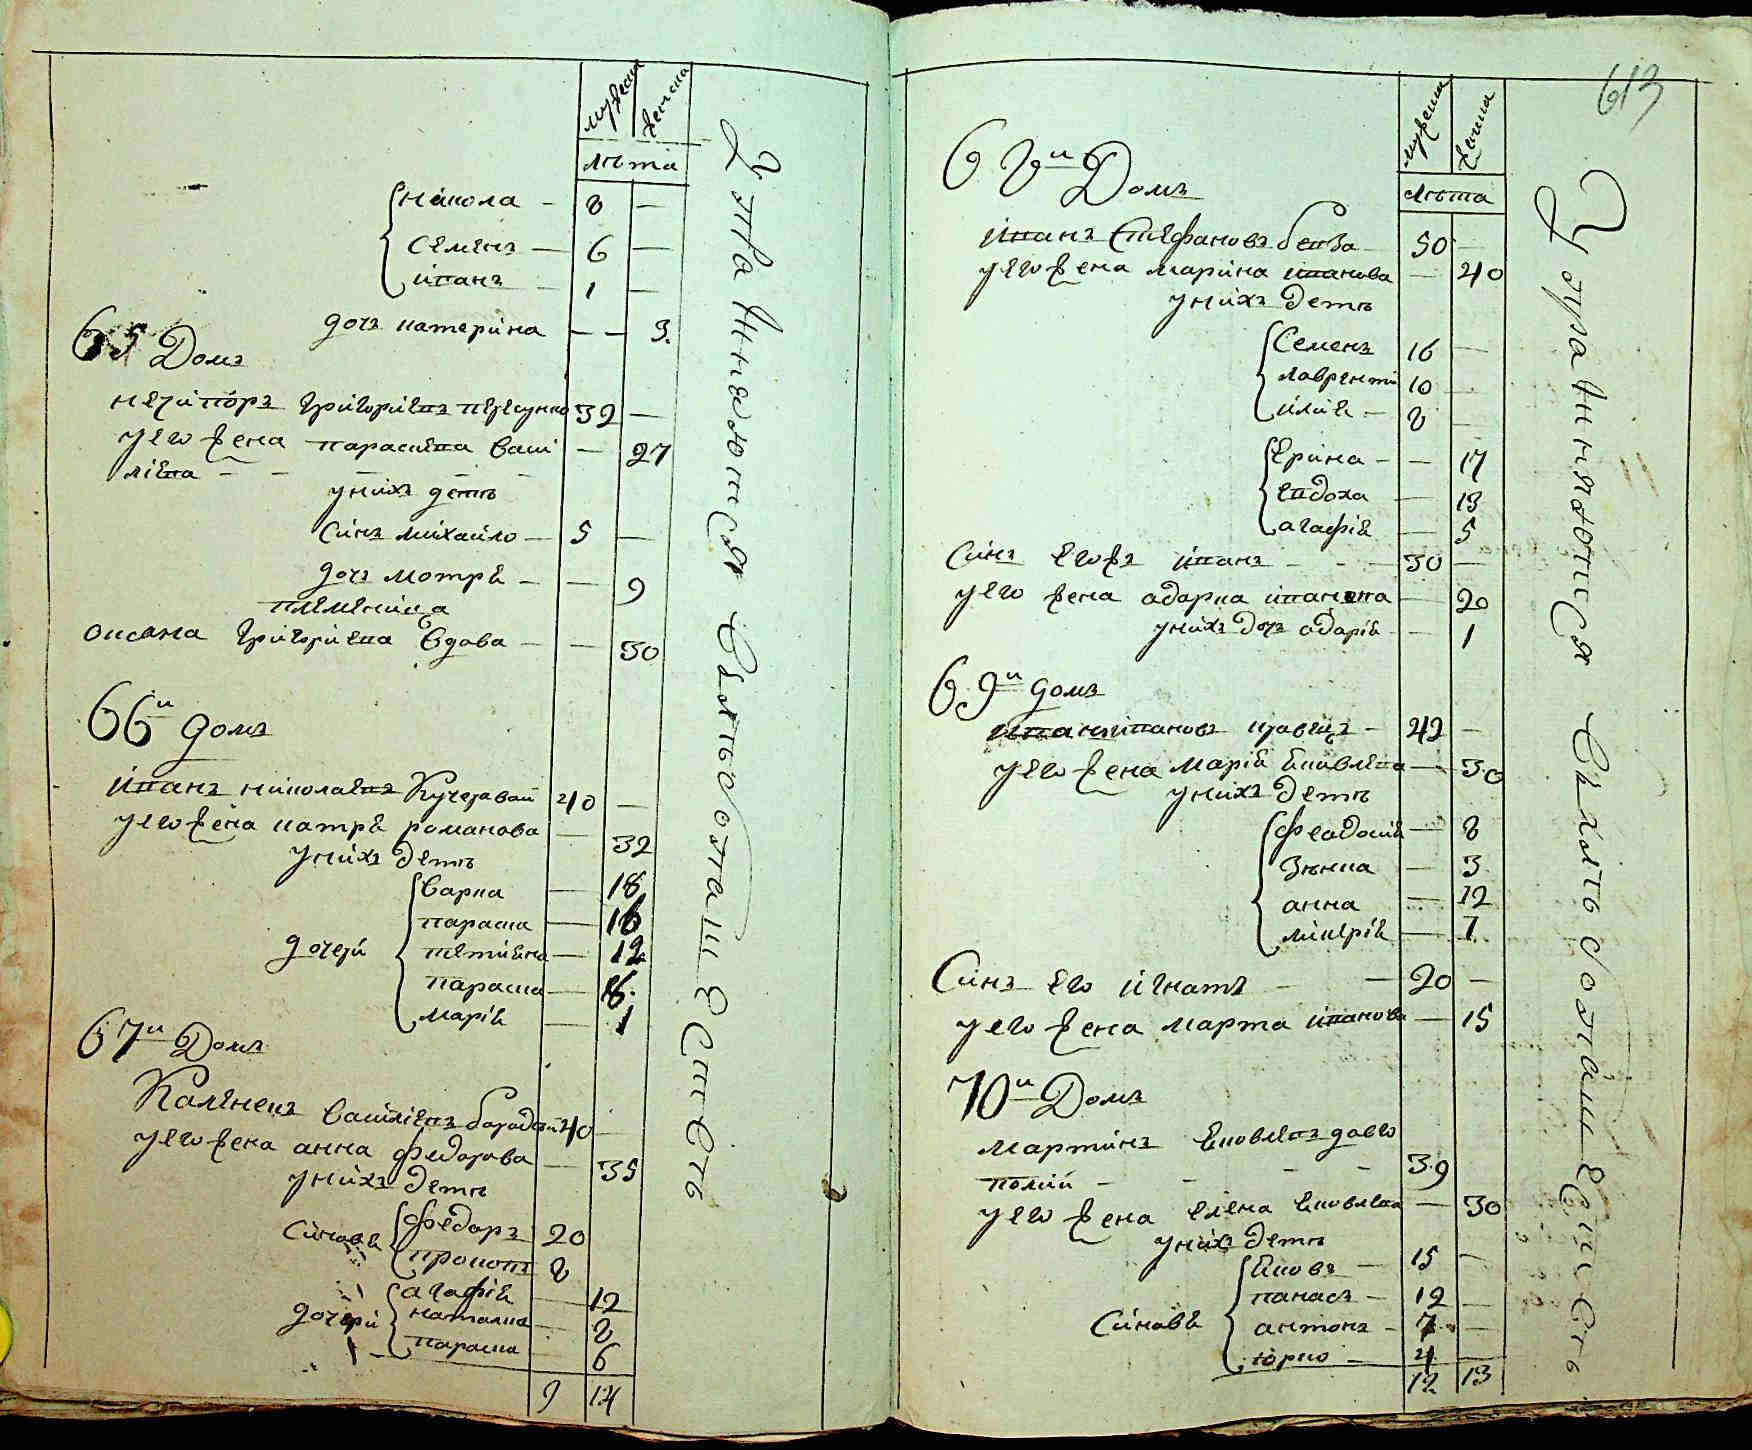 мужеска женска
лѣта
Никола - 8 -
Семенъ - 6 -
иванъ - 1 -
дочъ катерина - - 3
65 Домъ
нечипоръ Григориевъ 32 -
у его жена параскева Васи - 27
лиева - -
у нихъ детѣ
Синъ михайло - 5 -
дочъ мотрѣ - - 9
племеница
оксана Григориева вдова - - 30
66й домъ
иванъ николаевъ Кучеравой 40 -
у его жена катрѣ романова - 32
у нихъ детѣ
дочери
варка - 18
параска - 16
тетиѣна - 12
параска - 8
марїѣ - 1
67й Домъ
Каленекъ василїевъ бородай 40 -
у его жена анна федорова - 35
у нихъ детѣ
Синовѣ
федоръ 20
прокопъ 8
дочери
агафїѣ - 12
наталка - 8
параска - 6
9 14
613
мужеска женска
лѣта
68й Домъ
иванъ Стефановъ 50 -
у его жена марина иванова - 40
у нихъ детѣ
Семенъ 16 -
лаврентѣ 10 -
илиѣ - 8 -
ѣрина - - 17
евдоха - 13
агафїѣ - 5
Синъ его жъ иванъ - - 30 -
у его жена одарка ивановна - 20
у нихъ дочъ одарїѣ - - 1
69й домъ
иванъ ивановъ кравецъ - 42 -
у его жена марїѣ ѣковлева - 30
у нихъ детѣ
феодосїѣ - 8
Зѣнка - 3
анна - 12
- 1
Синъ его игнатъ - - 20 -
у его жена марта иванова - 15
70й Домъ
мартинъ ѣковлевъ довго
полий - - - 39
у его жена елена ѣковлева - 30
у нихъ детѣ
Синовѣ
ѣковъ - 15 -
панасъ - 12 -
антонъ - 7 -
юрко - 4
12 13